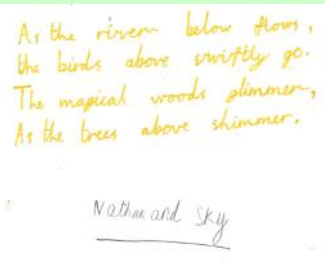 As the rivers below flows,
the birds above swiftly go.
The magical woods glimmer,
As the trees above shimmer.
Nathan and Sky